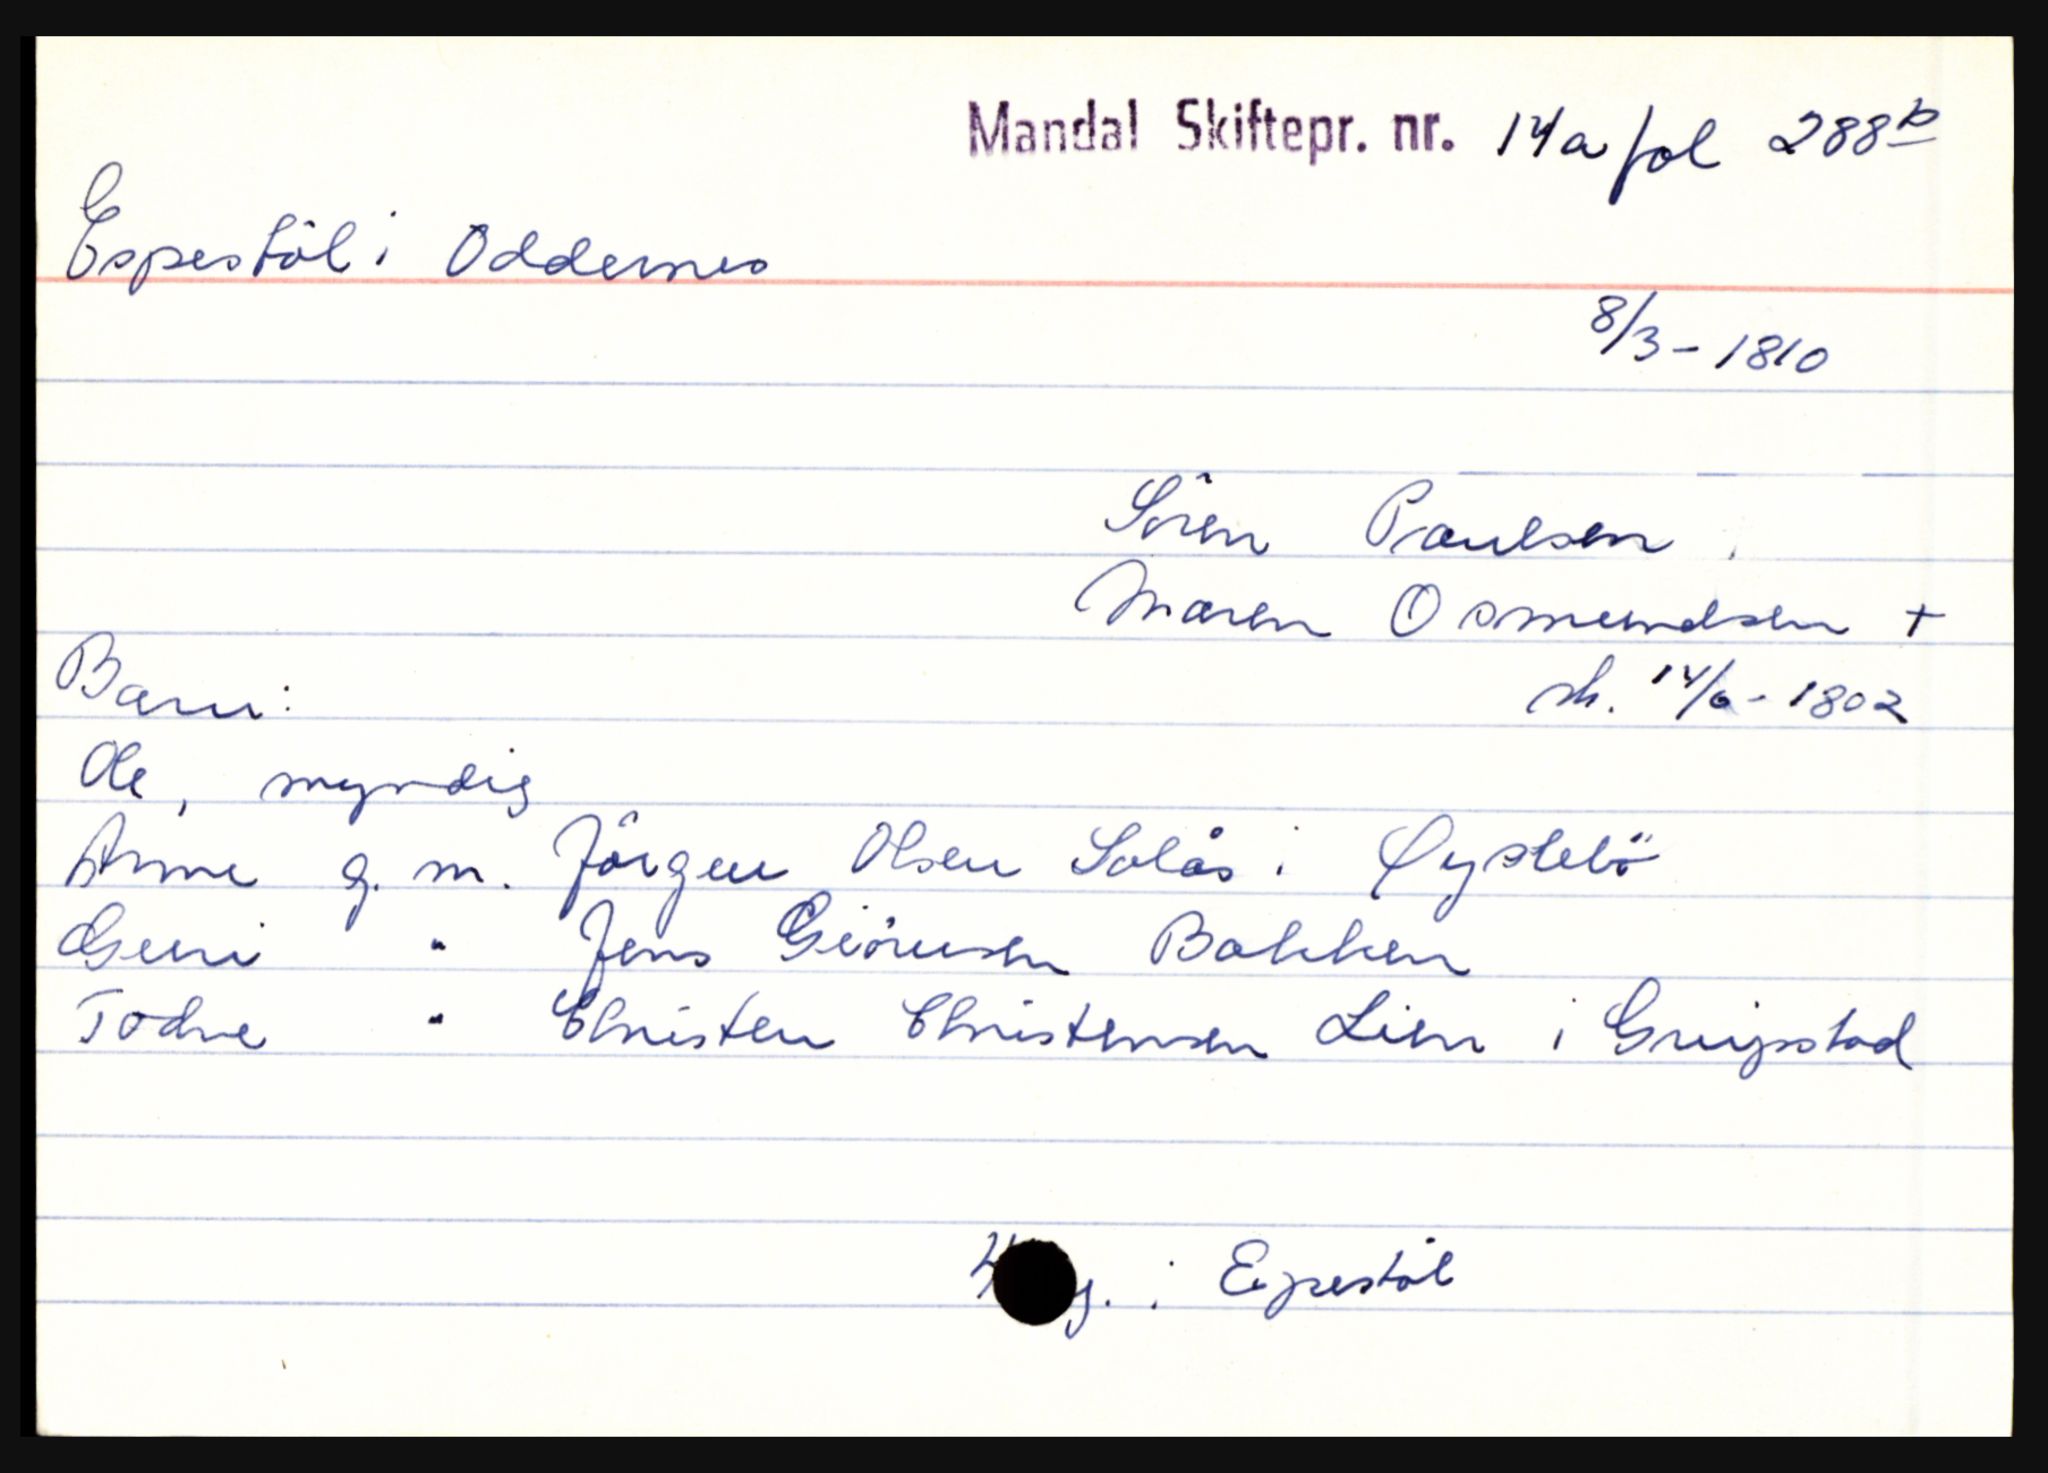 Mandal Skiftepr. nr. 14a fol 288b
Espestöl i Oddernes
8/3 - 1810
Sören Paulsen
Maren Osmundsen +
sk. 14/6 - 1802
Barn:
Ole, myndig
Anne g. m. Jörgen Olsen Solås i Øyslebö
Guri " Jens Giörusen Bakken
Todne " Christen Christensen Lien i Greipstad
g. i Espestöl